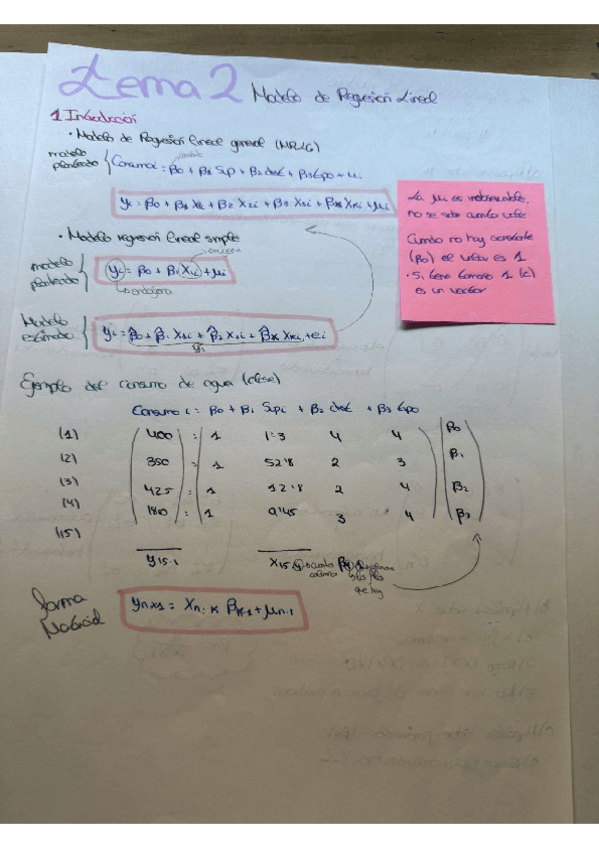 tema 2 Modelo de Regresión Lineal
1 Introducción
• Modelo de Regresión lineal general (MRLG)
modelo planteado { Consumoi = β0 + β1 Sup + β2 dost + β3 Epo + μi
yi = β0 + β1 Xi + β2 X2i + β3 X3i + βK XKi + μi
• Modelo regresión lineal simple
modelo planteado { yi = β0 + β1 X1i + μi
↳ endógena
Modelo estimado { yi = β̂0 + β̂1 X1i + β̂2 X2i + β̂K XKi + ei
ŷi
La μi es inobservable,
no se sabe cuanto vale
Cuando no hay constante
(β0) el valor es 1
• Si tiene tamaño 1 (c)
es un vector
Ejemplo del consumo de agua (clase)
Consumo i = β0 + β1 Supi + β2 dost + β3 Epo
(1) 400 = 1 1'3 4 4 β0
(2) 350 = 1 52'8 2 3 β1
(3) 425 = 1 12'8 2 4 β2
(4) 180 = 1 9'45 3 4 β3
(15)
y15·1 X15·4 β4·1
forma Matricial
yn×1 = Xn·K βK·1 + μn·1